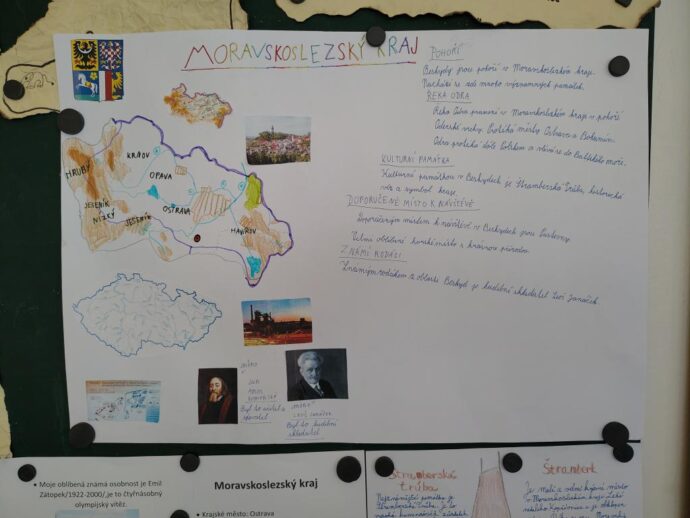 MORAVSKOSLEZSKÝ KRAJ
POHOŘÍ
Beskydy jsou pohoří v Moravskoslezském kraji.
Nachází se zde mnoho významných památek.
ŘEKA ODRA
Řeka Odra pramení v Moravskoslezském kraji v pohoří
Oderské vrchy. Protéká městy Ostrava a Bohumín.
Odra protéká dále Polskem a vlévá se do Baltského moře.
KULTURNÍ PAMÁTKA
Kulturní památkou v Beskydech je Štramberská Trúba, historická
věž a symbol kraje.
DOPORUČENÉ MÍSTO K NÁVŠTĚVĚ
Doporučeným místem k návštěvě v Beskydech jsou Pustevny.
Velmi oblíbené turistické místo s krásnou přírodou.
ZNÁMÍ RODÁCI
Známým rodákem z oblasti Beskyd je hudební skladatel Leoš Janáček.
HRUBÝ
JESENÍK
NÍZKÝ
JESENÍK
KRNOV
OPAVA
OSTRAVA
HAVÍŘOV
JAN
AMOS
KOMENSKÝ
Byl to učitel a
LEOŠ JANÁČEK
Byl to hudební
skladatel
• Moje oblíbená známá osobnost je Emil
Zátopek/1922-2000/,je to čtyřnásobný
olympijský vítěz.
Moravskoslezský kraj
• Krajské město: Ostrava
Štramberská
trúba
Štramberk
Je malé a velmi krásné město
v Moravskoslezském kraji. Leží